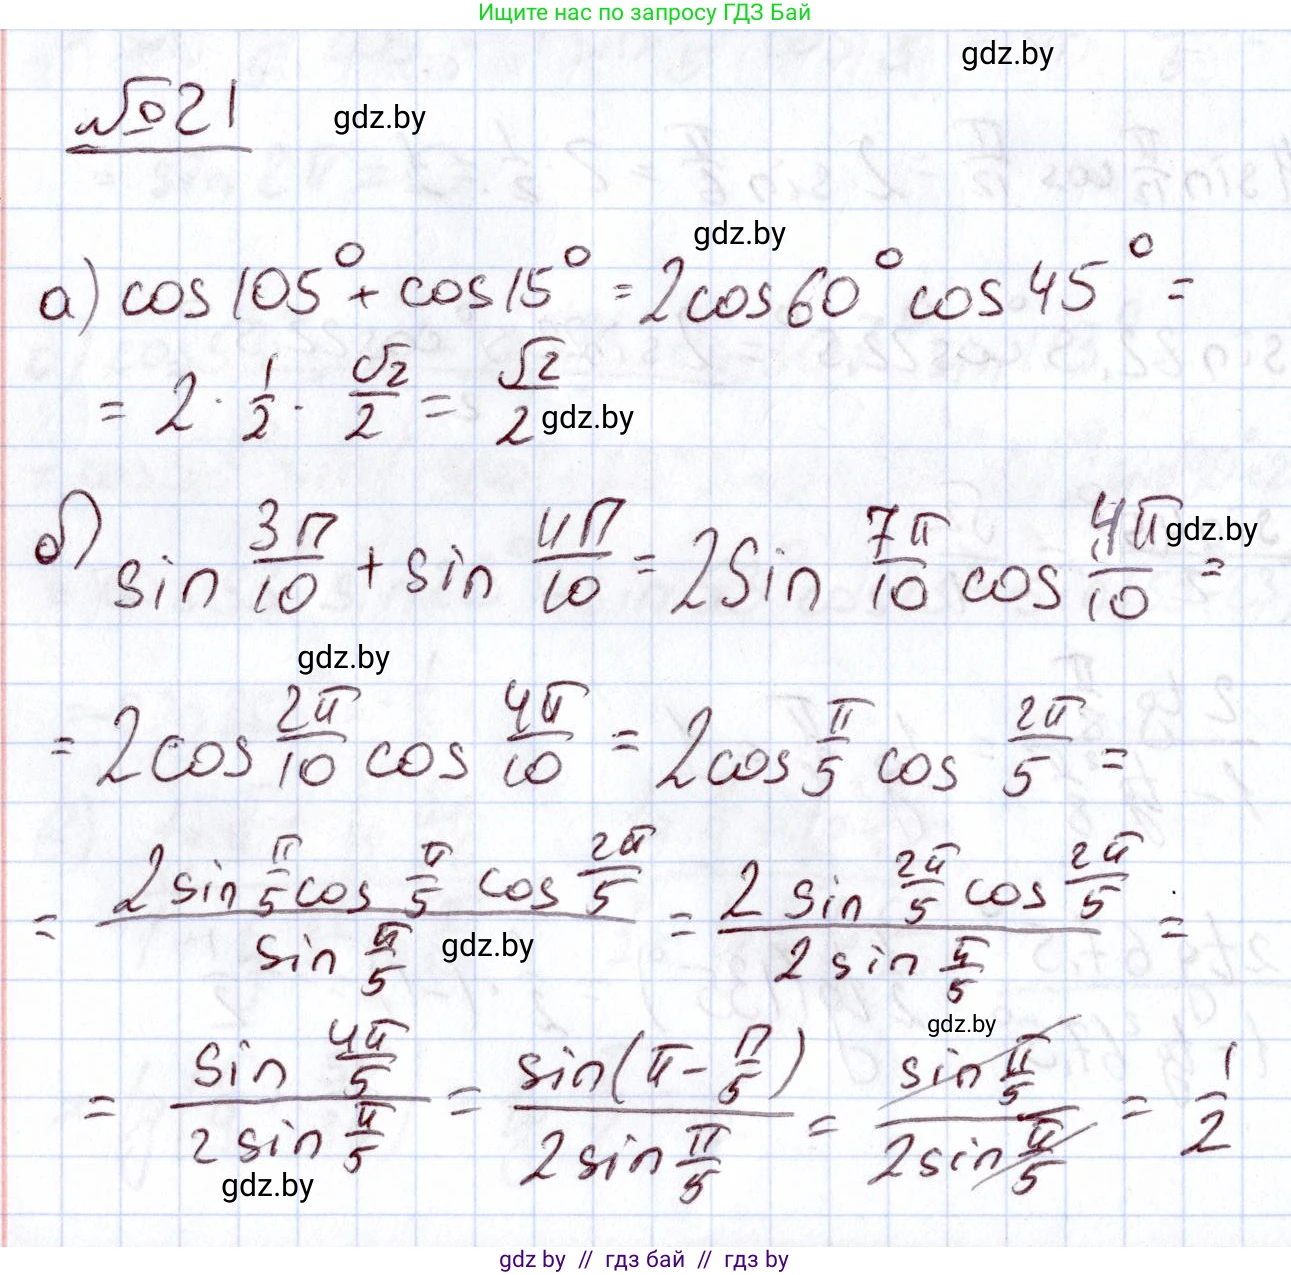 Ищите нас по запросу ГДЗ Бай
gdz.by
№21 gdz.by
gdz.by
а) cos 105° + cos 15° = 2cos 60° cos 45° =
= 2 · 1/2 · √2/2 = √2/2 gdz.by
б) sin 3π/10 + sin 4π/10 = 2 sin 7π/10 cos 4π/10 = gdz.by
gdz.by
= 2 cos 2π/10 cos 4π/10 = 2 cos π/5 cos 2π/5 =
= (2 sin π/5 cos π/5 cos 2π/5)/(sin π/5) = (2 sin 2π/5 cos 2π/5)/(2 sin π/5) =
gdz.by
gdz.by
= (sin 4π/5)/(2 sin π/5) = (sin(π - π/5))/(2 sin π/5) = (sin π/5)/(2 sin π/5) = 1/2
gdz.by
gdz by // гдз бай // гдз by